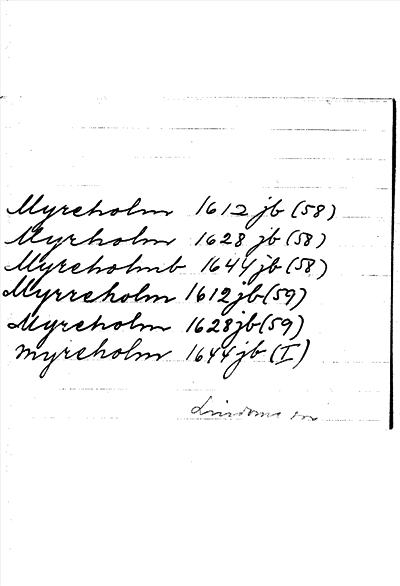 Myreholm 1612 jb (58)
Myrholm 1628 jb (58)
Myreholmb 1644 jb (58)
Myrreholm 1612 jb (59)
Myreholm 1628 jb (59)
myreholm 1644 jb (I)
Lindome sn